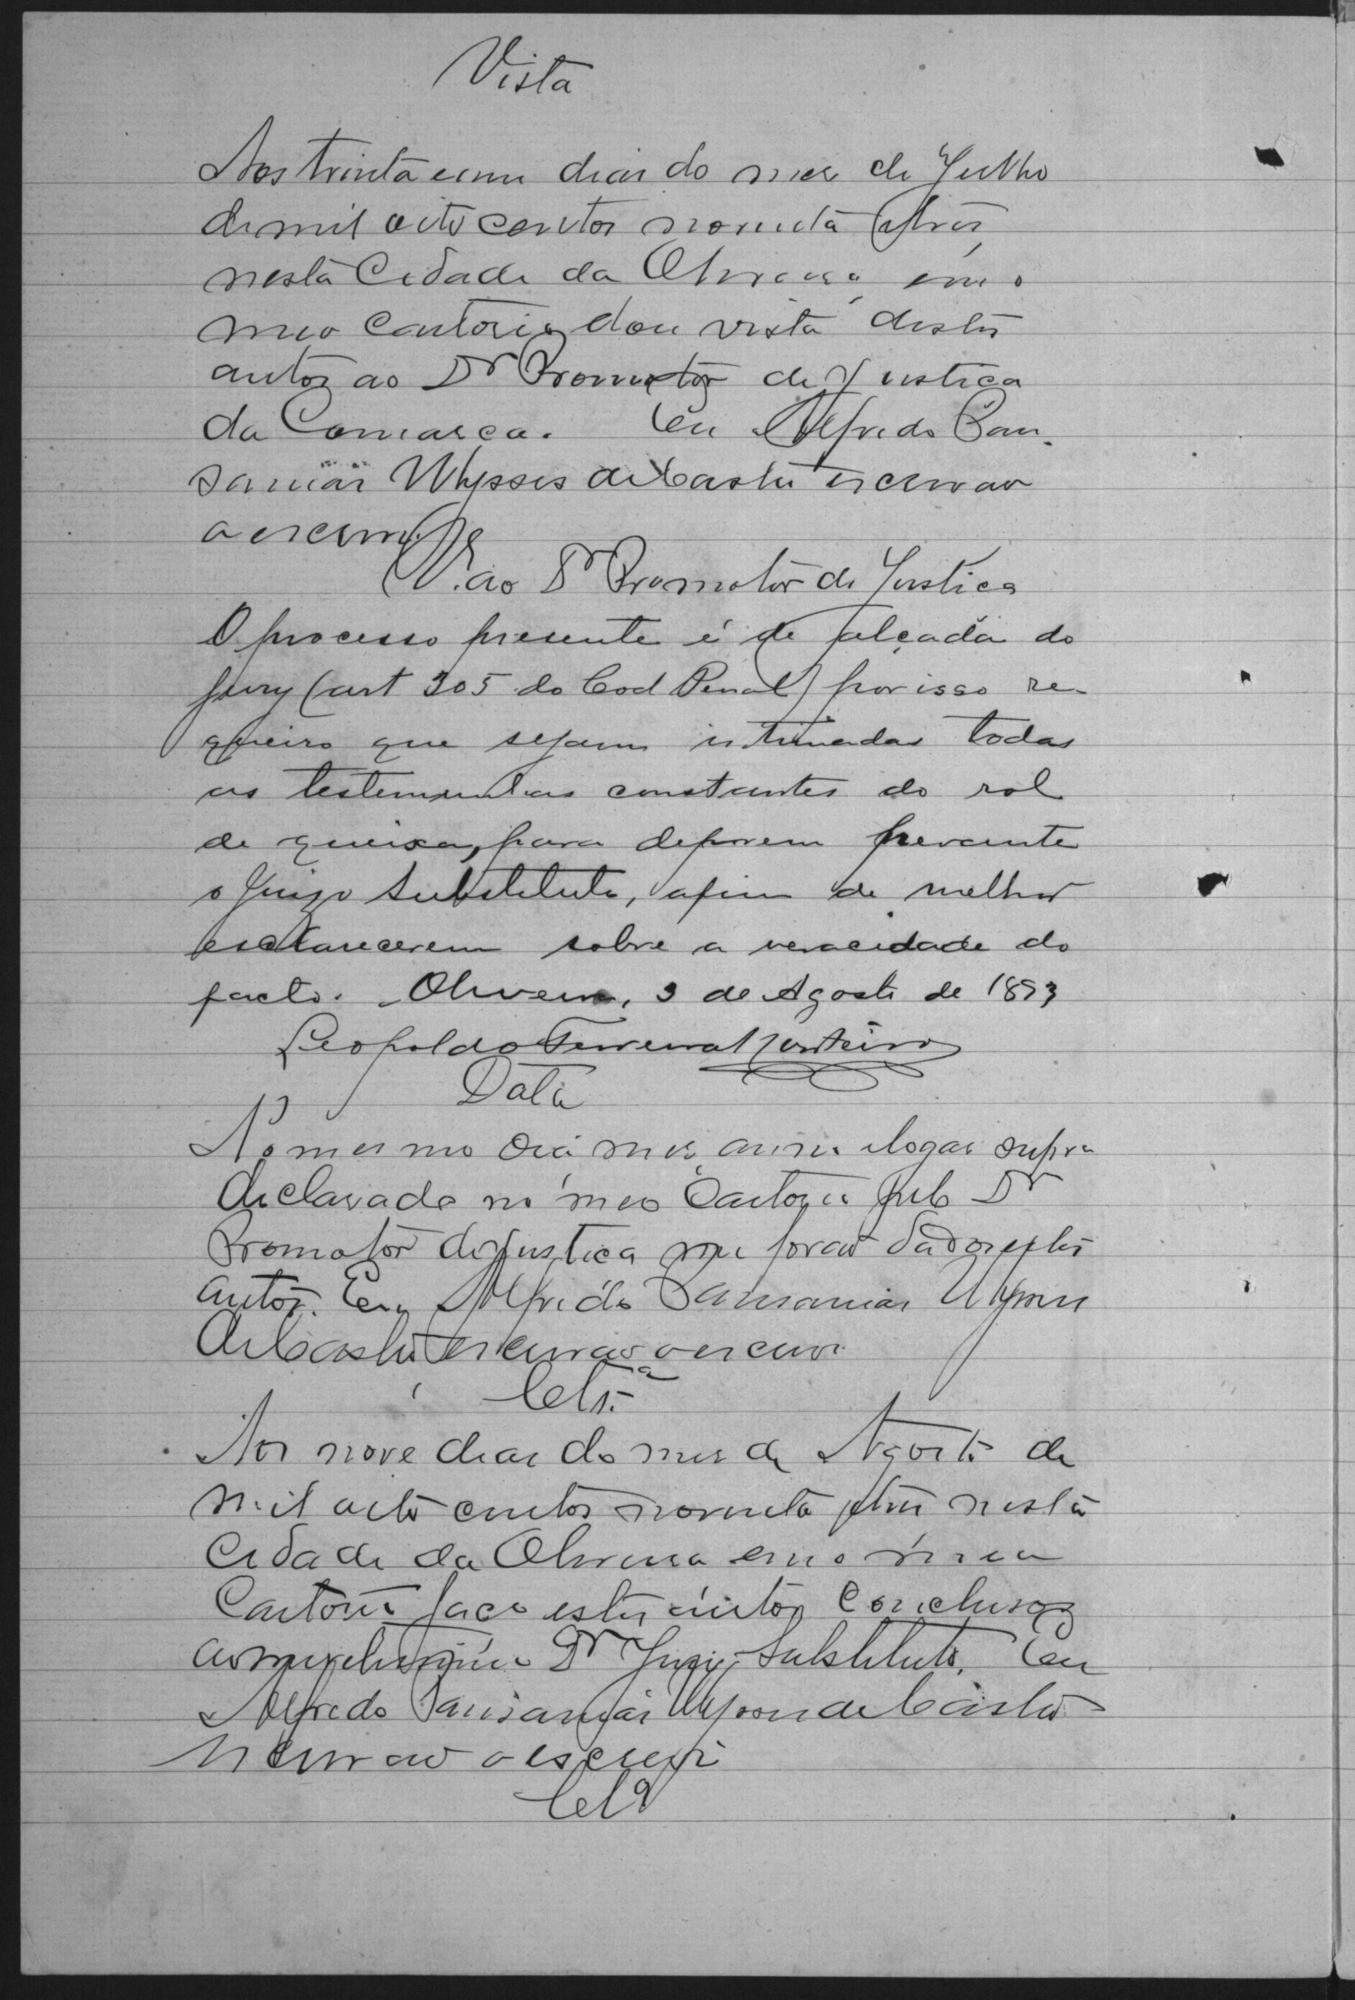 Vista
Aos trinta e um dias do mes de Julho
de mil oito centos noventa e tres
nesta Cidade da Oliveira em o
meo Cartorio dou vista destes
autos ao Dr Promotor de Justiça
da Comarca. Eu Alfredo Pau-
sanias Ulysses de Castro escrivão
o escrevi
V. ao Dr Promotor de Justiça
O processo presente é de alçada do
jury (art 305 do Cod Penal) por isso re-
queiro que sejam intimadas todas
as testemunhas constantes do rol
de queixa, para deporem perante
o Juizo Substituto, afim de melhor
esclarecerem sobre a veracidade do
facto. Oliveira, 9 de Agosto de 1893
Leopoldo Ferreira Monteiro
Data
No mesmo dia mes anno e logar supra
declarado no meo Cartorio pelo Dr
Promotor de Justiça me forão dados estes
autos. Eu Alfredo Pausanias Ulysses
de Castro escrivão o escrevi
Clsª
Aos nove dias do mes de Agosto de
mil oito centos noventa e tres nesta
Cidade da Oliveira em o meu
Cartorio faço estes autos conclusos
ao meretissimo Dr Juiz Substituto. Eu
Alfredo Pausanias Ulysses de Castro
escrivão o escrevi
Clª